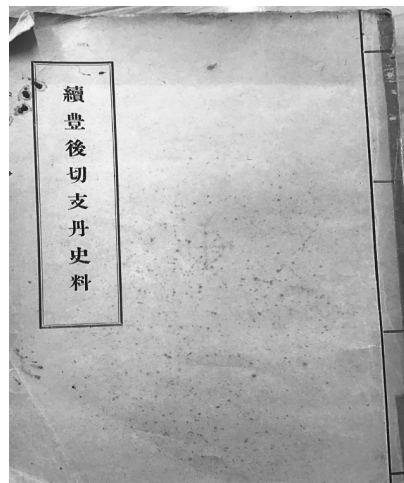 續豊後切支丹史料